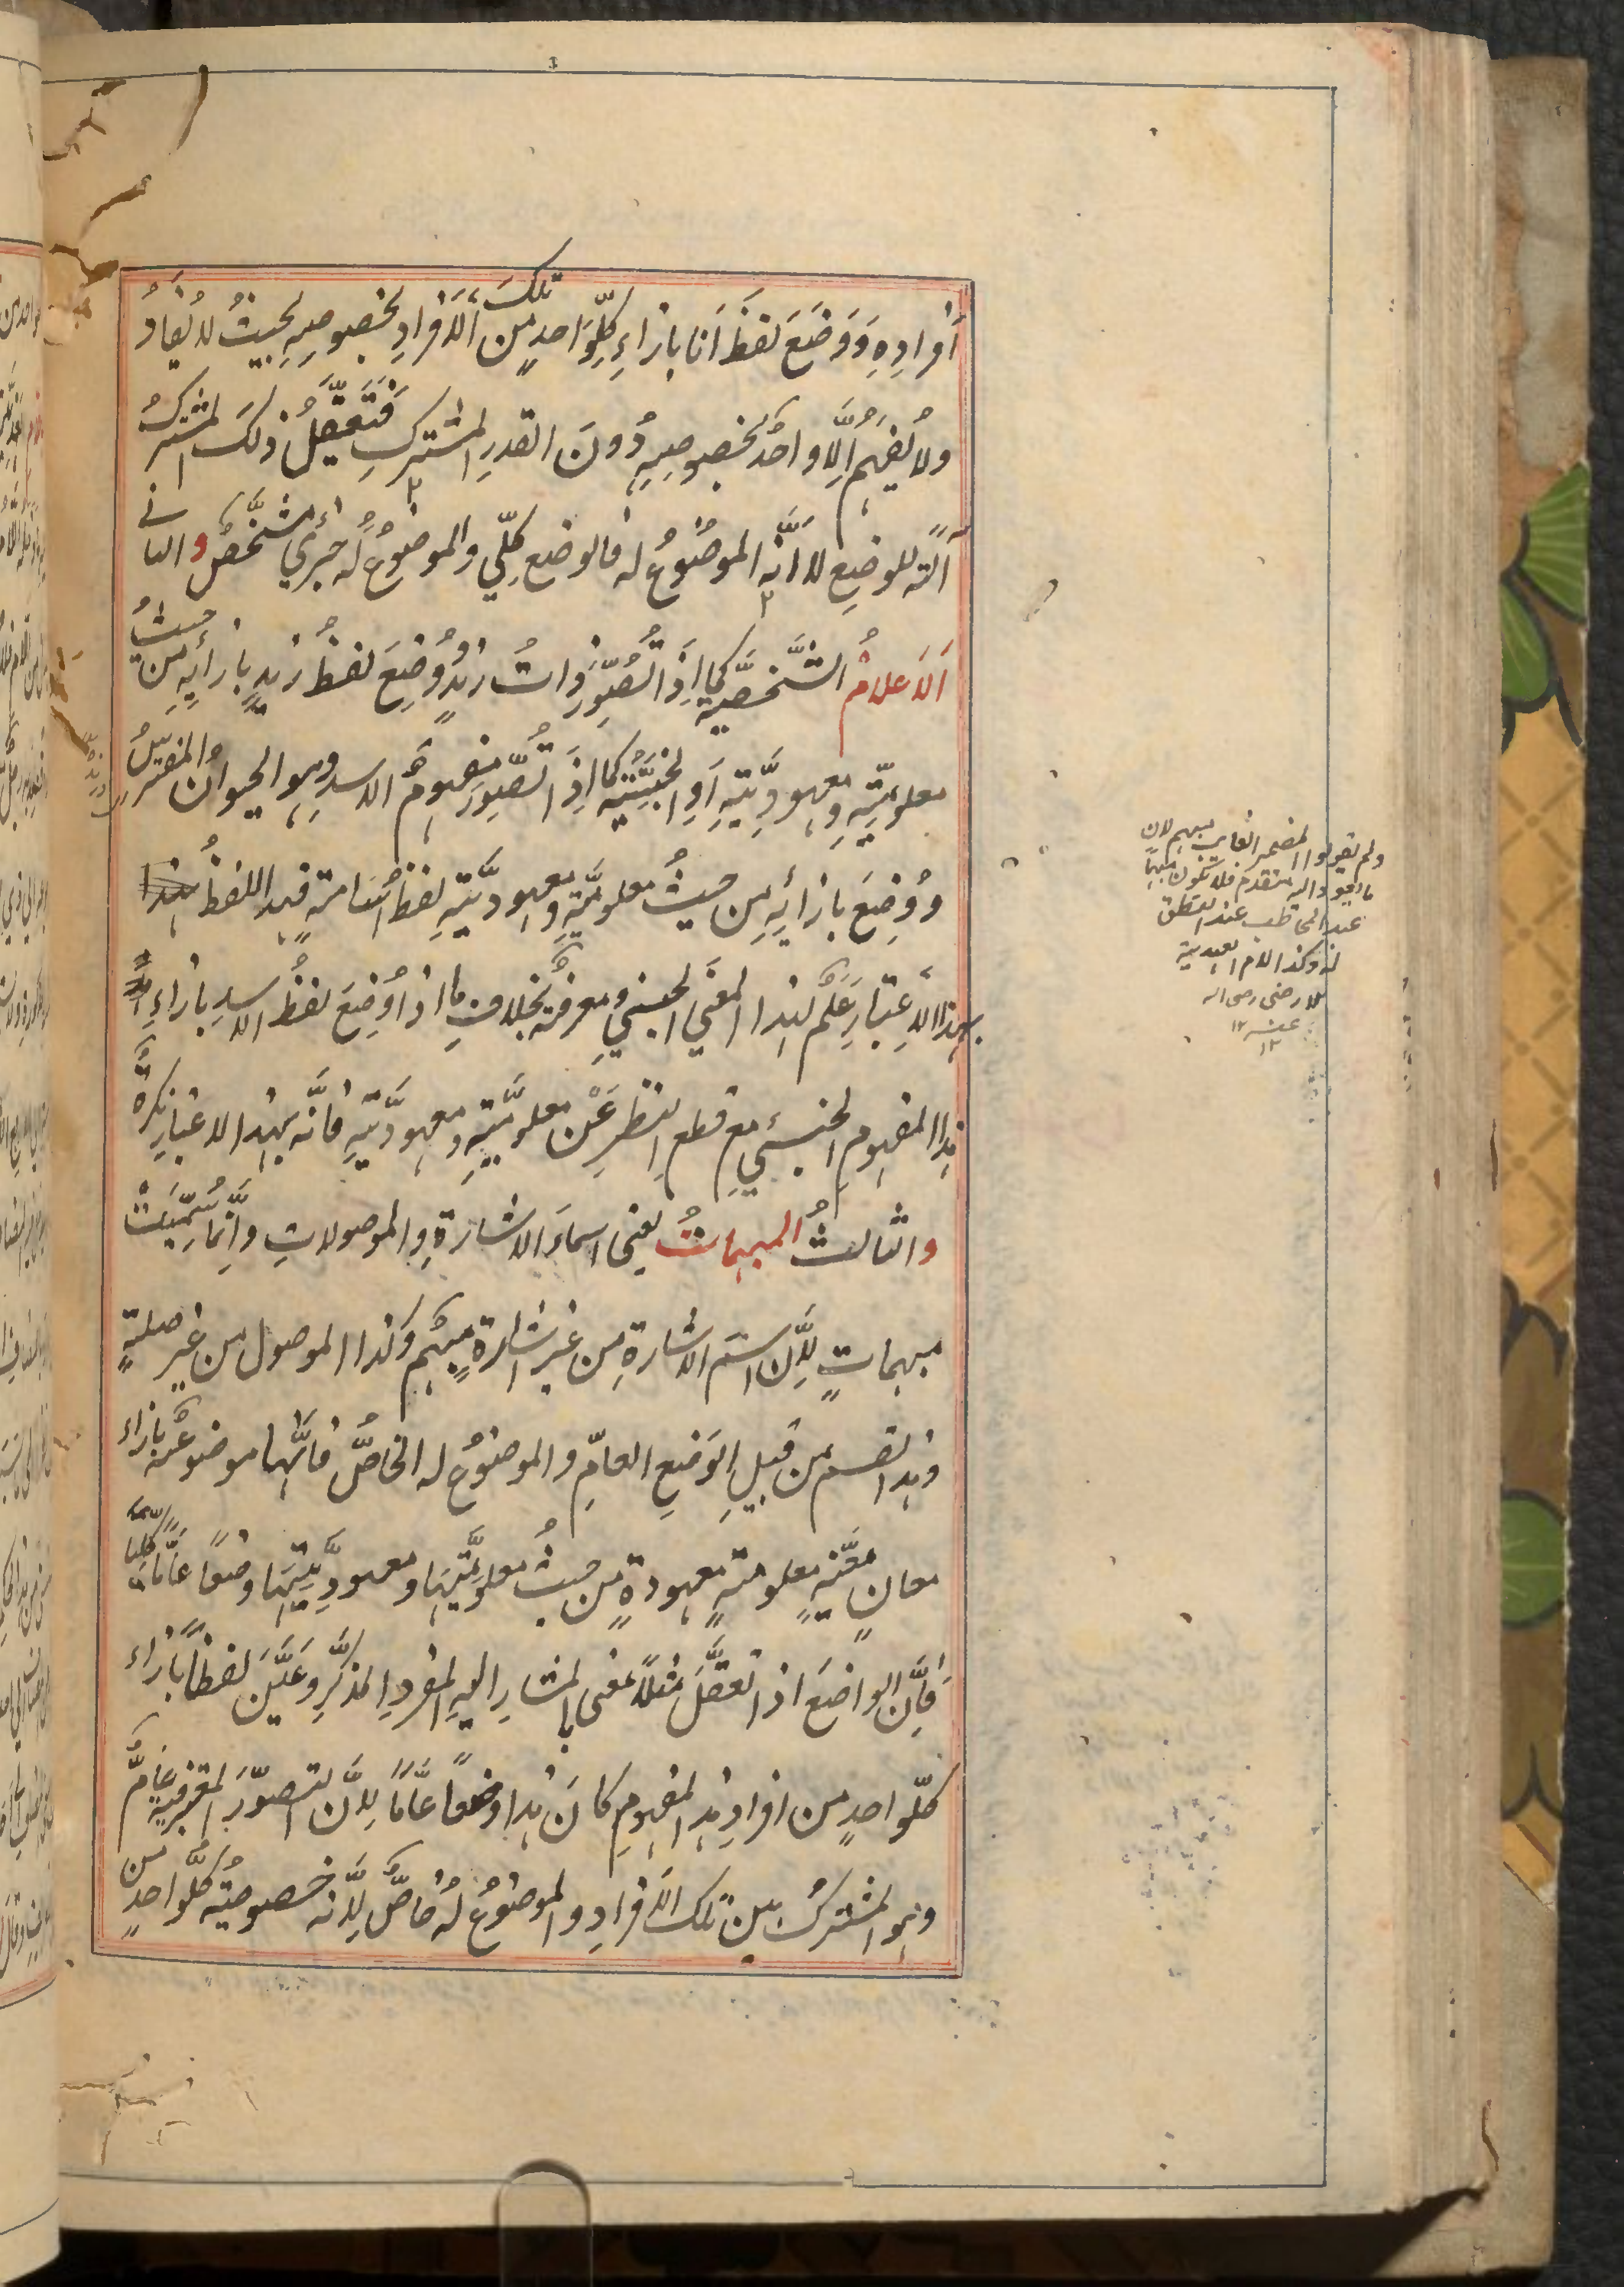 أَفْرَادِهِ وَوَضَعَ لفظَ اَنا بازاءِ كلِّ وَاحدٍ مِن تلكَ الاَفرادِ بخصوصِهِ بحيثُ لا يُفادُ
ولا يُفهَمُ اِلَّا واحدٌ بخصوصِهِ دُونَ القدرِ المشتركِ فَتَعَقُّلُ ذلكَ المشتركُ
آلةٌ للوضعِ لا اَنّه الموضُوعُ له فالوضع كلّي والموضوعُ لَه جزئي مشخَّصٌ والثانى
اَلاَعلامُ الشَّخصيّة كما اِذَا تُصُوِّرَ ذاتُ زيدٍ وُوضِعَ لفظُ زيدٍ بازائِهِ مِن حيثُ
معلوميّتِهِ ومعهوديَّتِهِ اَوِ الجنسيَّة كما اذَا تُصُوِّرَ مفهومُ الاسدِ وهو الحيوانُ المفترسُ
وَوُضِعَ بازائِهِ مِن حيثُ معلوميَّتِهِ ومعهوديَّتِهِ لفظُ اُسَامةَ فهذا اللفظُ
بهذا الاِعتبارِ عَلَمٌ لهذا المعنَى الجنسيِ ومعرفةٌ بخلافِ ما اذا وُضِعَ لفظُ الاسدِ بازاءِ
هذا المفهومِ الجنسيِّ مع قطعِ النظرِ عَنْ معلوميَّتِهِ ومعهوديَّتِهِ فانَّه بهذا الاعتبارِ نكرةٌ
والثالثُ المبهماتُ يعنى اسماءَ الاشارةِ والموصولاتِ وانَّمَا سُمِّيَتْ
مبهماتٍ لاَِنَّ اسمَ الاشارةِ من غيرِ اشارةٍ مبهَمٌ وكذا الموصول من غير صلةٍ
وهذا القسم من قبيلِ الوَضعِ العامِّ والموضوعُ له الخاصُّ فانَّها موضوعةٌ بازاءِ
معانٍ معيَّنةٍ معلومةٍ معهودةٍ من حيثُ معلوميَّتِهَا ومعهوديَّتِهَا وضعًا عَامًّا كلّيًّا
فاِنَّ الواضعَ اذا تعقَّلَ مثلًا معنى المشارِ اليهِ المفردِ المذكَّرِ وعَيَّنَ لفظًا بازاءِ
كلِّ واحدٍ من افرادِ هذا المفهومِ كانَ هذا وضعًا عامًّا لاَِنَّ التصوّرَ المعتبرَ فيه عَامٌّ
وهو المشتركُ بين تلك الاَفرادِ والموضوعُ لهُ خاصٌّ لاَِنَّه خصوصيّةُ كلِّ واحدٍ من
ولم يقولوا المضمر الغايب مبهم لان
ما يعود اليه متقدم فلا يكون مبهما
عند المخاطب عند النطق
به وكذا اللام العهدية
للا رضى رضى الله
عنه ١٢